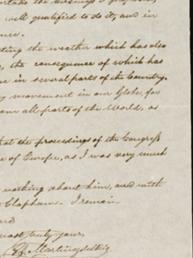 well qualified to do it, and in
ting the weather which has also
, the consequence of which has
in several parts of the Country,
movement in our Globe, for
all parts of the World, as
that the proceedings of the Congress
of Europe, as I was very much
nothing about him, and with
Clapham. I remain
most truly yours,